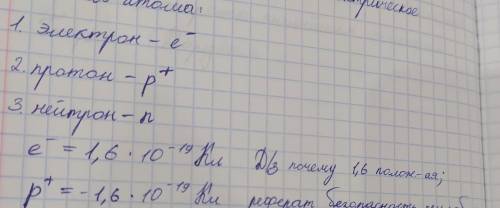 атома:
1. электрон – e⁻
2. протон – p⁺
3. нейтрон – n
e⁻ = 1,6 · 10⁻¹⁹ Кл Д/з почему 1,6 полож-ая;
p⁺ = -1,6 · 10⁻¹⁹ Кл реферат безопасность